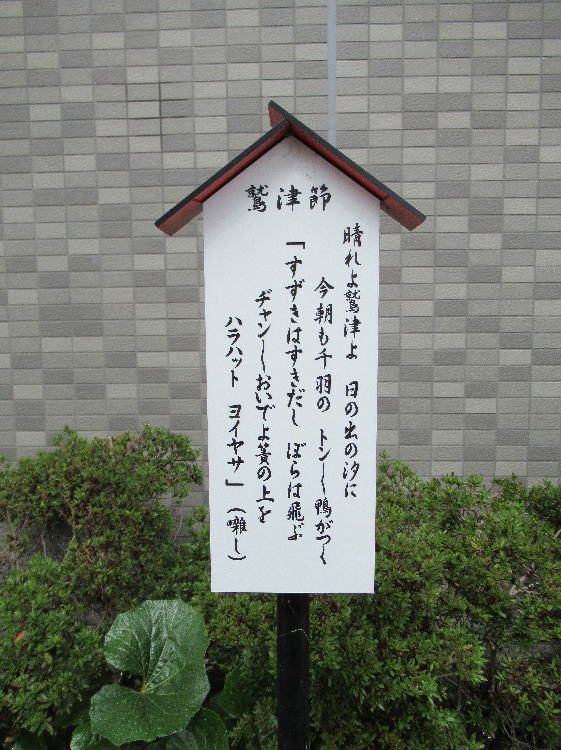 鷲津節
晴れよ鷲津よ 日の出の汐に
今朝も千羽の トン〱鴨がつく
「すずきはすきだし ぼらは飛ぶ
ヂャン〱おいでよ簀の上を
ハラハット ヨイヤサ」(囃し)